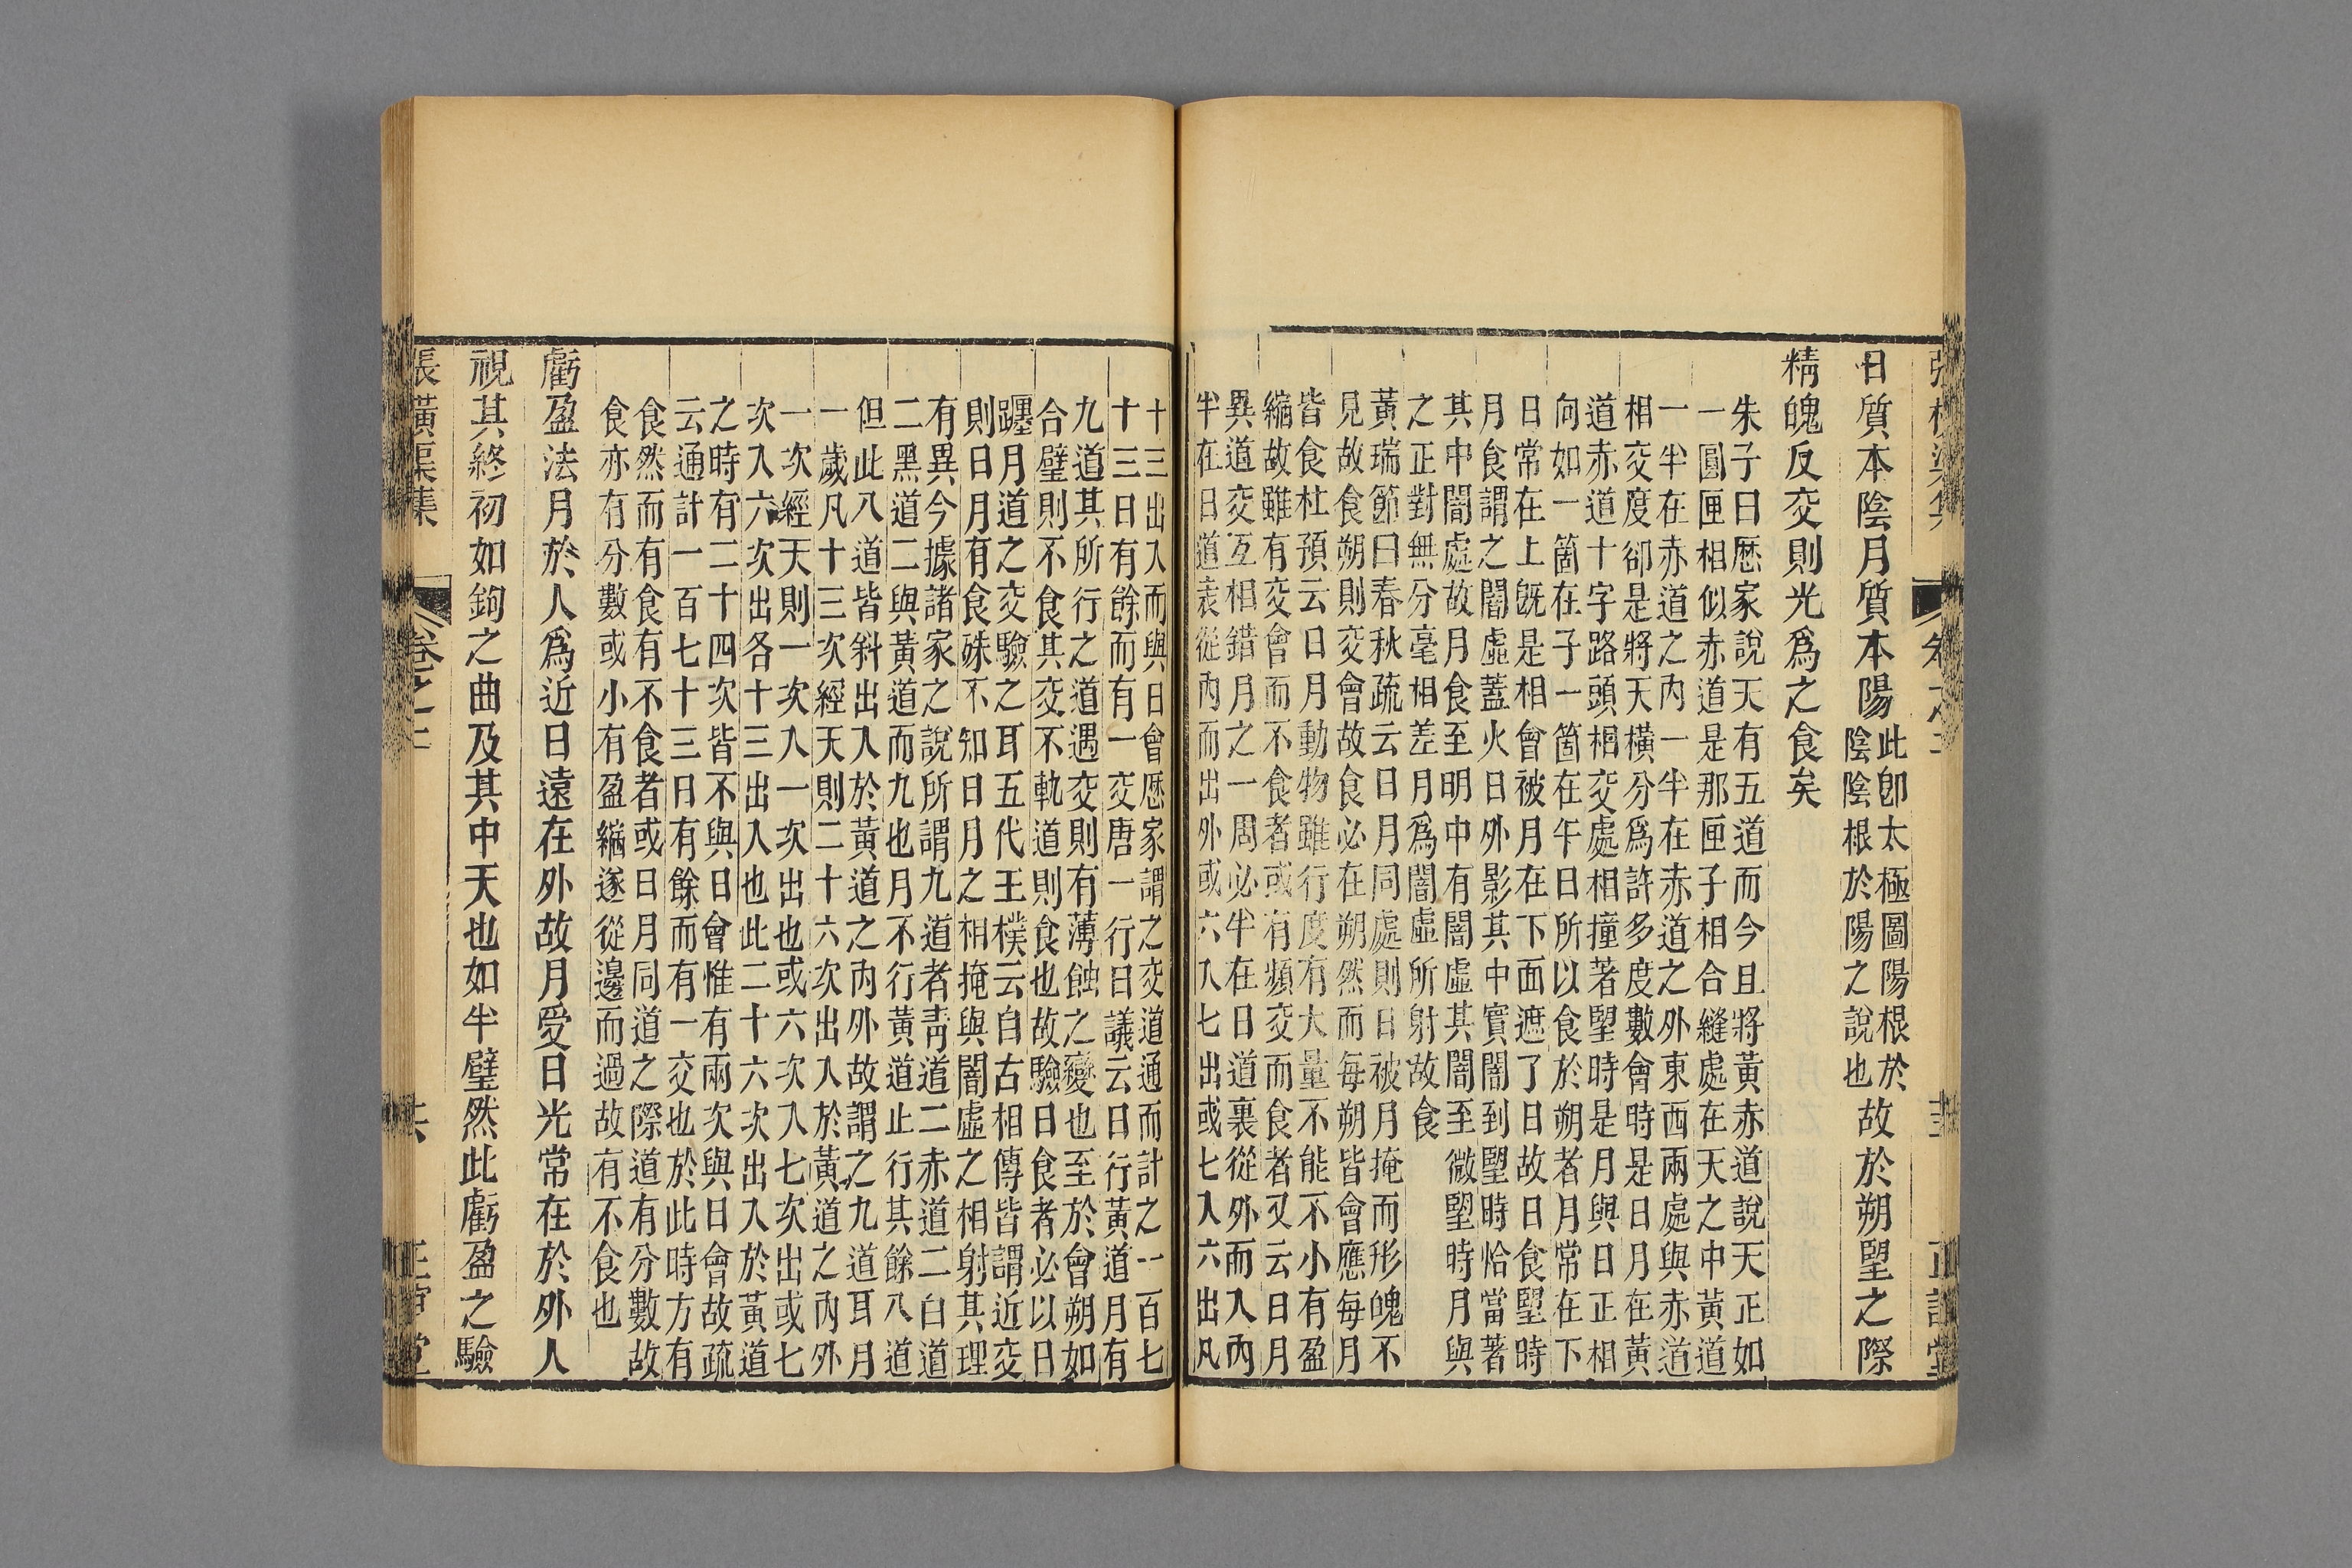 日質本陰月質本陽此卽太極圖陽根於
陰陰根於陽之說也故於朔望之際
精魄反交則光爲之食矣
朱子曰厯家說天有五道而今且將黃赤道說天正如
一圓匣相似赤道是那匣子相合縫處在天之中黃道
一半在赤道之內一半在赤道之外東西兩處與赤道
相交度卻是將天橫分爲許多度數會時是日月在黃
道赤道十字路頭相交處相撞著望時是月與日正相
向如一箇在子一箇在午日所以食於朔者月常在下
日常在上旣是相會被月在下面遮了日故日食望時
月食謂之闇虛蓋火日外影其中實闇到望時恰當著
其中闇處故月食至明中有闇虛其闇至微望時月與
之正對無分毫相差月爲闇虛所射故食
黃瑞節曰春秋疏云日月同處則日被月掩而形魄不
見故食朔則交會故食必在朔然而每朔皆會應每月
皆食杜預云日月動物雖行度有大量不能不小有盈
縮故雖有交會而不食者或有頻交而食者又云日月
異道交互相錯月之一周必半在日道裏從外而入內
半在日道表從內而出外或六入七出或七入六出凡
十三出入而與日會厯家謂之交道通而計之一百七
十三日有餘而有一交唐一行日議云日行黃道月有
九道其所行之道遇交則有薄蝕之變也至於會朔如
合璧則不食其交不軌道則食也故驗日食者必以日
躔月道之交驗之耳五代王樸云自古相傳皆謂近交
則日月有食殊不知日月之相掩與闇虛之相射其理
有異今據諸家之說所謂九道者靑道二赤道二白道
二黑道二與黃道而九也月不行黃道止行其餘八道
但此八道皆斜出入於黃道之內外故謂之九道耳月
一歲凡十三次經天則二十六次出入於黃道之內外
一次經天則一次入一次出也或六次入七次出或七
次入六次出各十三出入也此二十六次出入於黃道
之時有二十四次皆不與日會惟有兩次與日會故疏
云通計一百七十三日有餘而有一交也於此時方有
食然而有食有不食者或日月同道之際道有分數故
食亦有分數或小有盈縮遂從邊而過故有不食也
虧盈法月於人爲近日遠在外故月受日光常在於外人
視其終初如鉤之曲及其中天也如半璧然此虧盈之驗
張橫渠集 卷之二